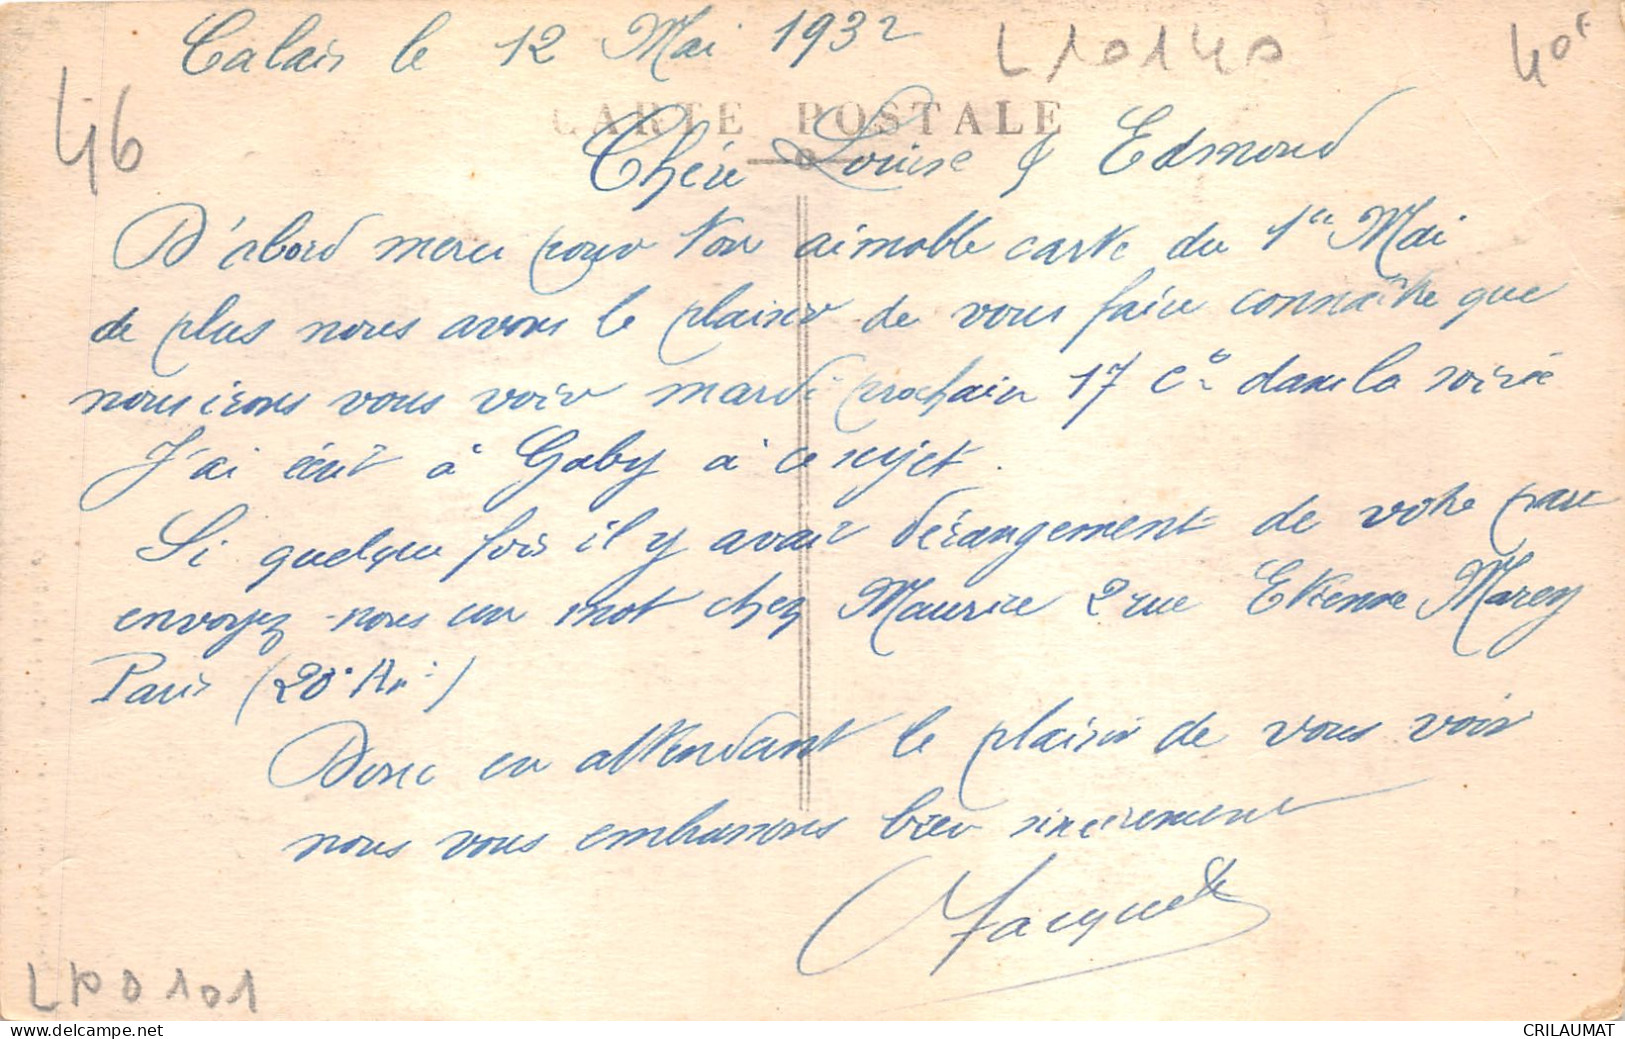 Calais le 12 Mai 1932
L10140
40F
46
CARTE POSTALE
Chère Louise & Edmond
D'abord merci pour ton aimable carte du 1er Mai
de plus nous avons le plaisir de vous faire connaître que
nous irons vous voir mardi prochain 17 ct dans la soirée
J'ai écrit à Gaby à ce sujet.
Si quelque fois il y avait dérangement de votre part
envoyez-nous un mot chez Maurice 2 rue Etienne Marey
Paris (20e Arr:)
Donc en attendant le plaisir de vous voir
nous vous embrassons bien sincèrement
L10101
CRILAUMAT